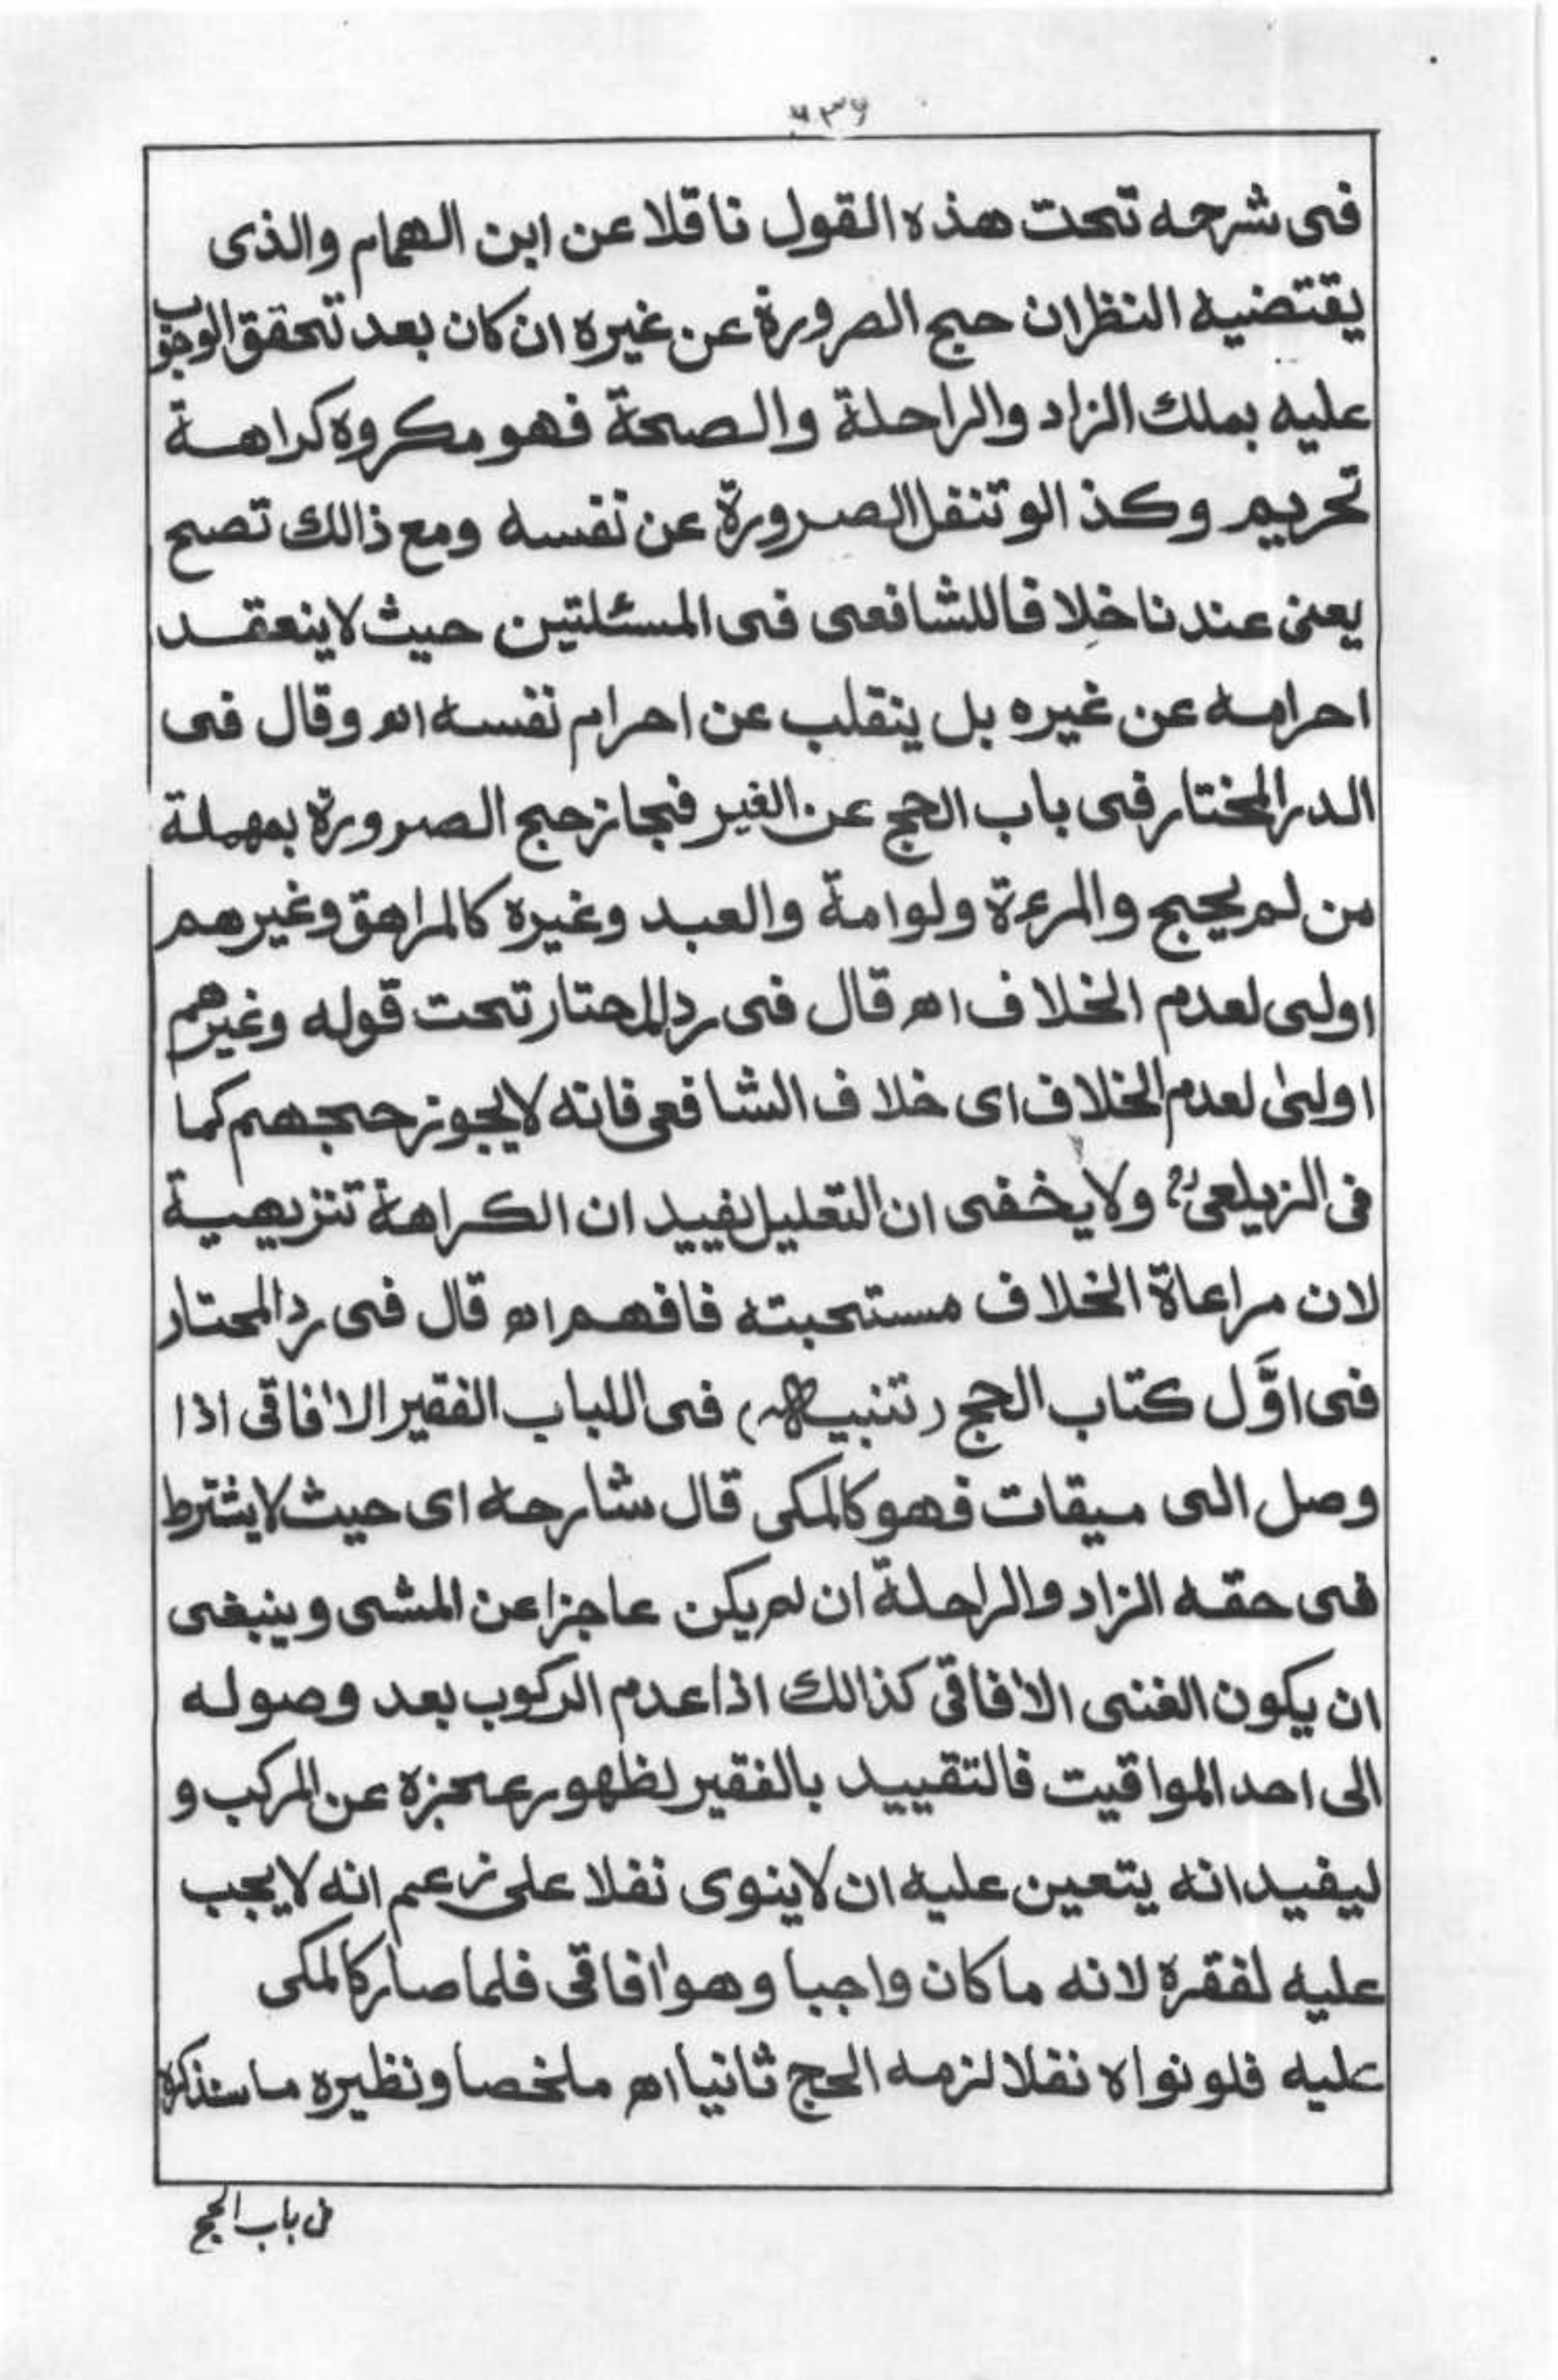 ٦٣٦
فى شرحه تحت هذه القول ناقلا عن ابن الهمام والذى
يقتضيه النظر ان حج الصرورة عن غيره ان كان بعد تحقق الوجوب
عليه بملك الزاد والراحلة والصحة فهو مكروه كراهة
تحريم وكذا لو تنفل الصرورة عن نفسه ومع ذالك تصح
يعنى عندنا خلافا للشافعى فى المسئلتين حيث لا ينعقد
احرامه عن غيره بل ينقلب عن احرام نفسه اھ وقال فى
الدر المختار فى باب الحج عن الغير فجاز حج الصرورة بمهملة
من لم يحج والمرءة ولو امة والعبد وغيره كالمراهق وغيرهم
اولى لعدم الخلاف اھ قال فى رد المحتار تحت قوله وغيرهم
اولىٰ لعدم الخلاف اى خلاف الشافعى فانه لا يجوز حجهم كما
فى الزيلعىؒ ولا يخفى ان التعليل يفيد ان الكراهة تنزيهية
لان مراعاة الخلاف مستحبته فافهم اھ قال فى رد المحتار
فى اوَّل كتاب الحج (تنبيه) فى اللباب الفقير الاٰفاقى اذا
وصل الى ميقات فهو كالمكى قال شارحه اى حيث لا يشترط
فى حقه الزاد والراحلة ان لم يكن عاجزا عن المشى وينبغى
ان يكون الغنى الاٰفاقى كذالك اذا عدم الركوب بعد وصوله
الى احد المواقيت فالتقييد بالفقير لظهور عجزه عن المركب و
ليفيد انه يتعين عليه ان لا ينوى نفلا على زعم انه لا يجب
عليه لفقره لانه ما كان واجبا وهو اٰفاقى فلما صار كالمكى
عليه فلو نواه نفلا لزمه الحج ثانيا اھ ملخصا ونظيره ما سنذكره
فى باب الحج